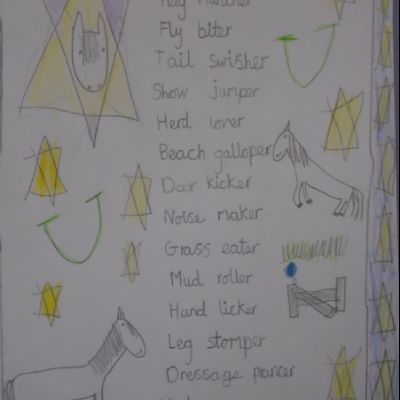 Hay muncher
Fly biter
Tail swisher
Show jumper
Herd lover
Beach galloper
Door kicker
Noise maker
Grass eater
Mud roller
Hand licker
Leg stomper
Dressage prancer